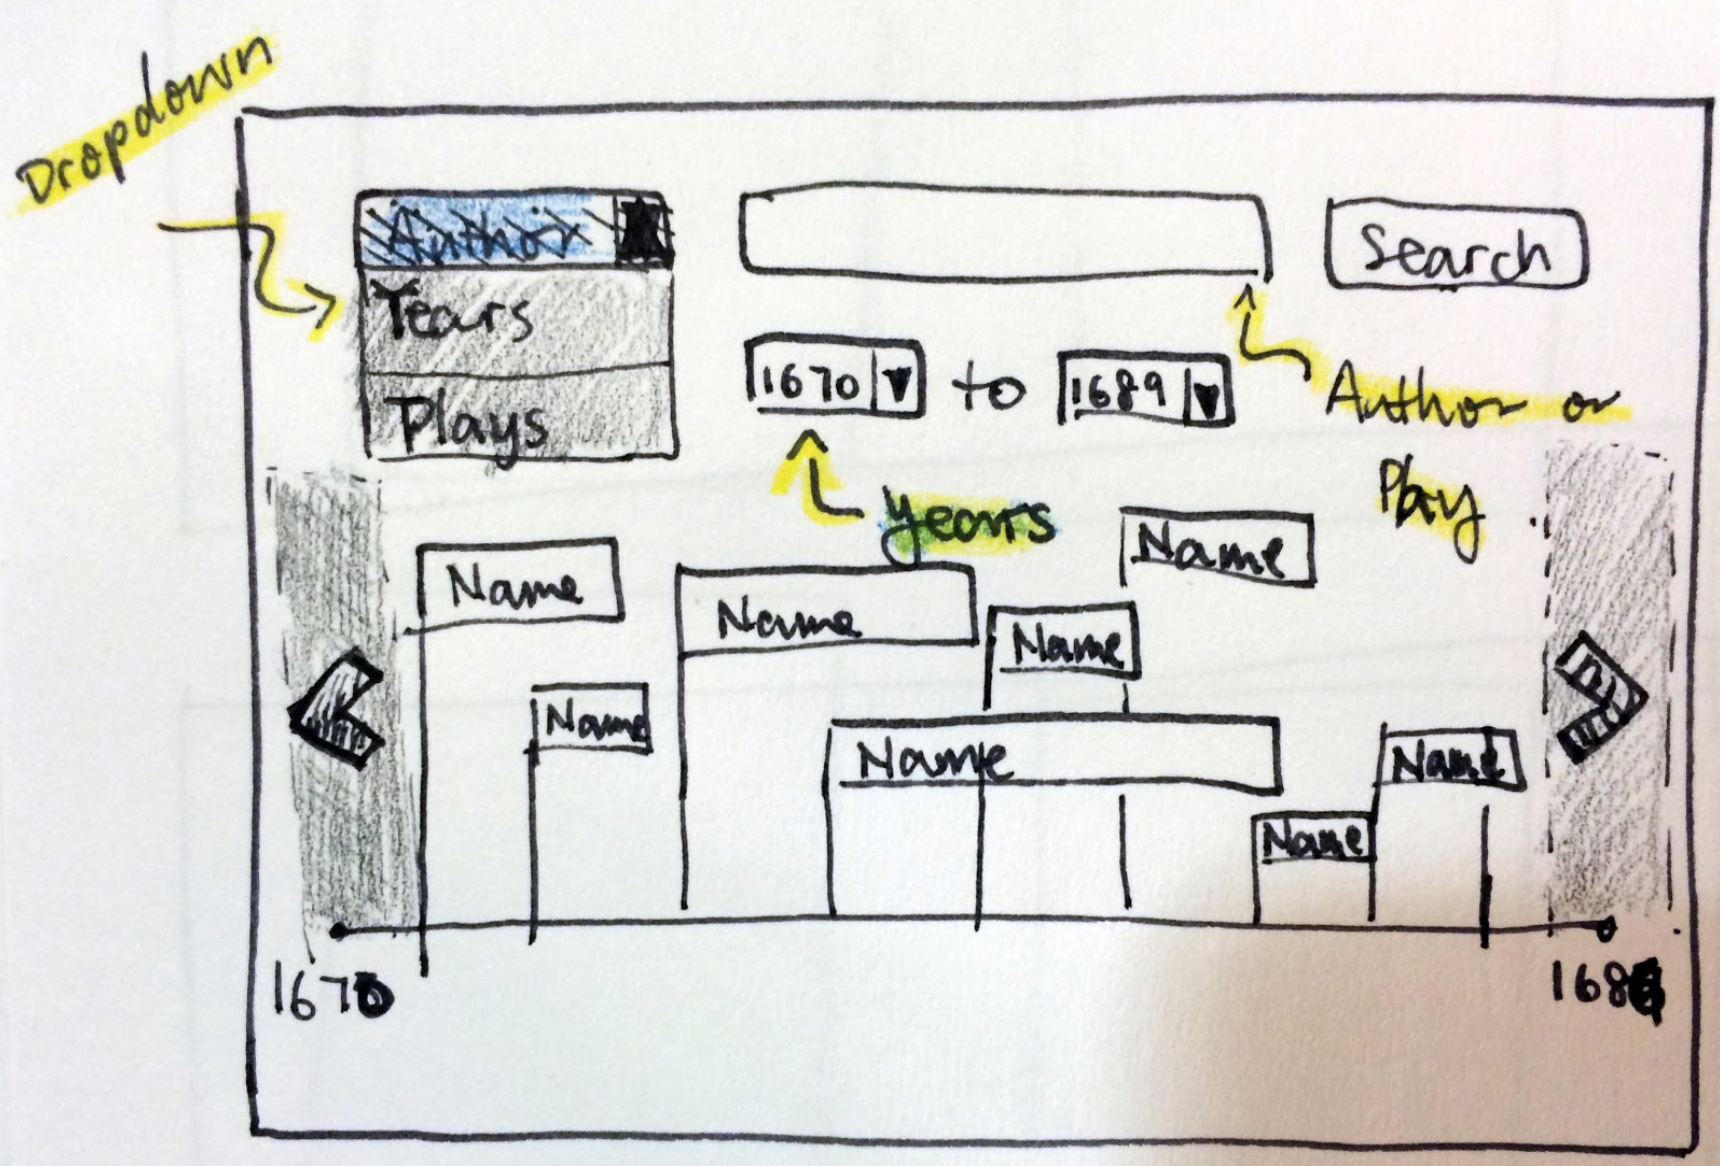 Dropdown
Author
Search
Years
1670 to 1689
Plays
Author or
Play
years
Name
Name
Name
Name
Name
Name
Name
Name
1670
168